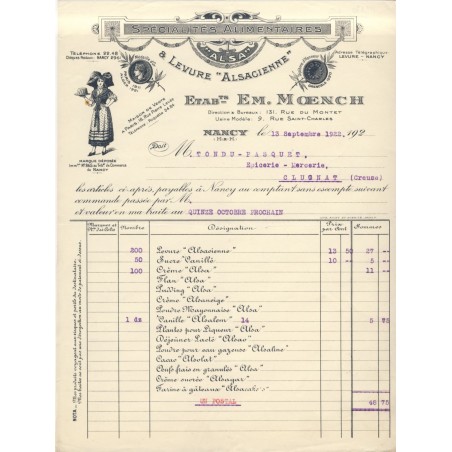 SPÉCIALITÉS ALIMENTAIRES
"ALSA"
& LEVURE "ALSACIENNE"
TÉLÉPHONE 52.48
Chèques-Postaux: NANCY
Adresse Télégraphique
LEVURE - NANCY
ETABts EM. MŒNCH
Direction & Bureaux: 131, RUE DU MONTET
Usine Modèle: 9, RUE SAINT-CHARLES
MARQUE DÉPOSÉE
NANCY
NANCY, le 13 Septembre 1922, 192
(M.&M.)
Doit
M. TONDU-PASQUET,
Epicerie - Mercerie,
CLUGNAT (Creuse)
les articles ci-après, payables à Nancy au comptant sans escompte suivant
commande passée par M.
et valeur en ma traite au QUINZE OCTOBRE PROCHAIN
Nombre Désignation Prix par Cent Sommes
200 Levure "Alsacienne" 13 50 27 --
50 Sucre Vanillé 10 -- 5 --
100 Crème "Alsa" 11 --
Flan "Alsa"
Pudding "Alsa"
Crème "Alsaneige"
Poudre Mayonnaise "Alsa"
1 dz Vanille "Alsalem" 14 5 75
Plantes pour Liqueur "Alsa"
Déjeuner Lacté "Alsao"
Poudre pour eau gazeuse "Alsaline"
Cacao "Alsolat"
Œufs frais en granulés "Alsa"
Crème sucrée "Alsagar"
Farine à gâteaux "Alsacake's"
EN POSTAL
48 75